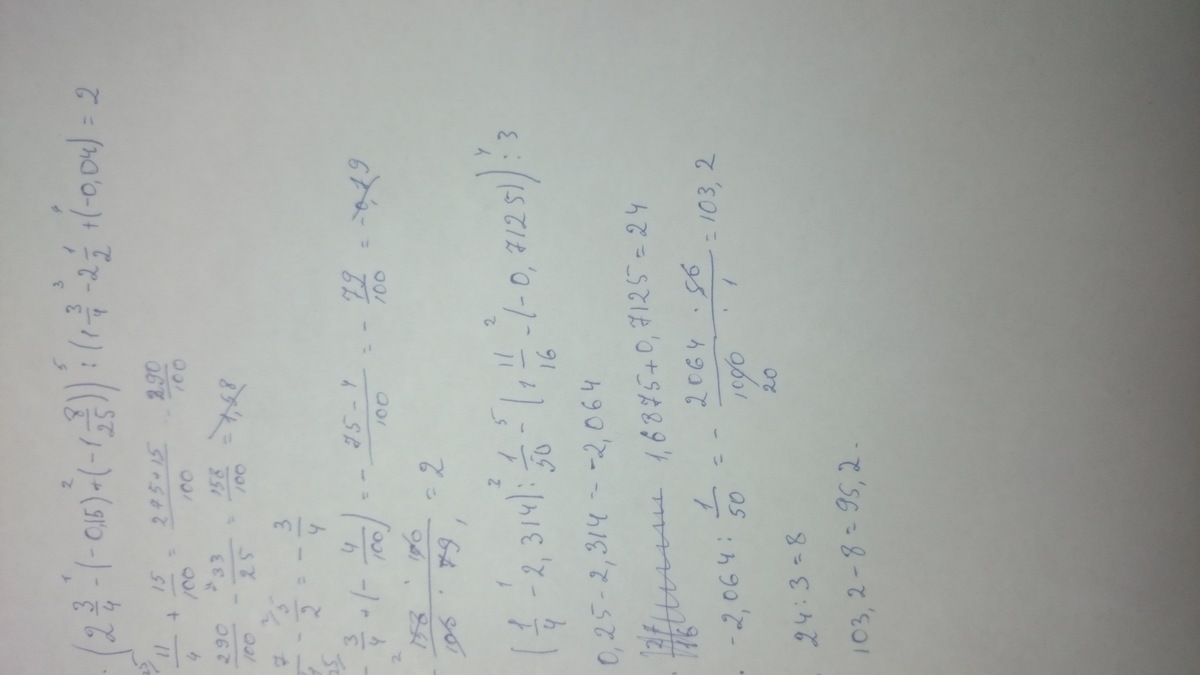 (2 3/4 - (-0,15) + (-1 8/25)) : (1 3/4 - 2 1/2 + (-0,04) = 2
11/4 + 15/100 = 275+15/100 290/100
290/100 - 33/25 = 158/100 = 1,58
7/4 - 5/2 = - 3/4
- 3/4 + (- 4/100) = - 75-4/100 = - 79/100 = -0,79
158 · 100/100 · 79 = 2
(1/4 - 2,314) : 1/50 - (1 11/16 - (-0,7125)) : 3
0,25 - 2,314 = -2,064
27/16 1,6875 + 0,7125 = 24
-2,064 : 1/50 = - 2064 · 50/1000 · 1 = 103,2
20
24 : 3 = 8
103,2 - 8 = 95,2